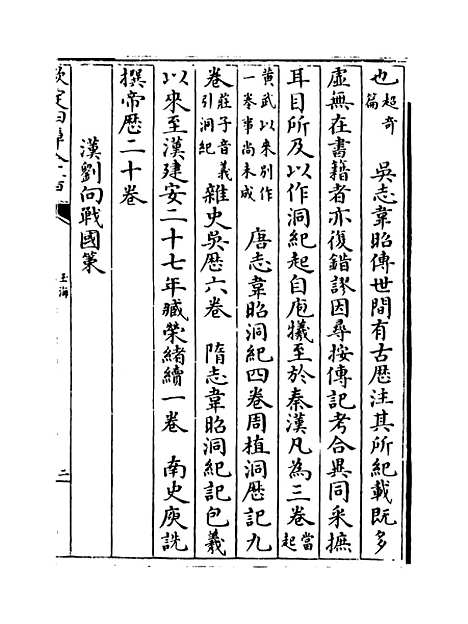 也超奇篇　吳志韋昭傳世間有古歴注其所紀載既多
虛無在書籍者亦復錯謬因尋按傳記考合異同采摭
耳目所及以作洞紀起自庖犧至於秦漢凡為三卷當起
黄武以來別作一卷事尚未成　唐志韋昭洞紀四卷周植洞歴記九
卷莊子音義引洞紀　雜史吳歴六卷　隋志韋昭洞紀記包義
以來至漢建安二十七年臧榮緒續一卷　南史庾詵
撰帝歴二十卷
漢劉向戰國策
玉海
二